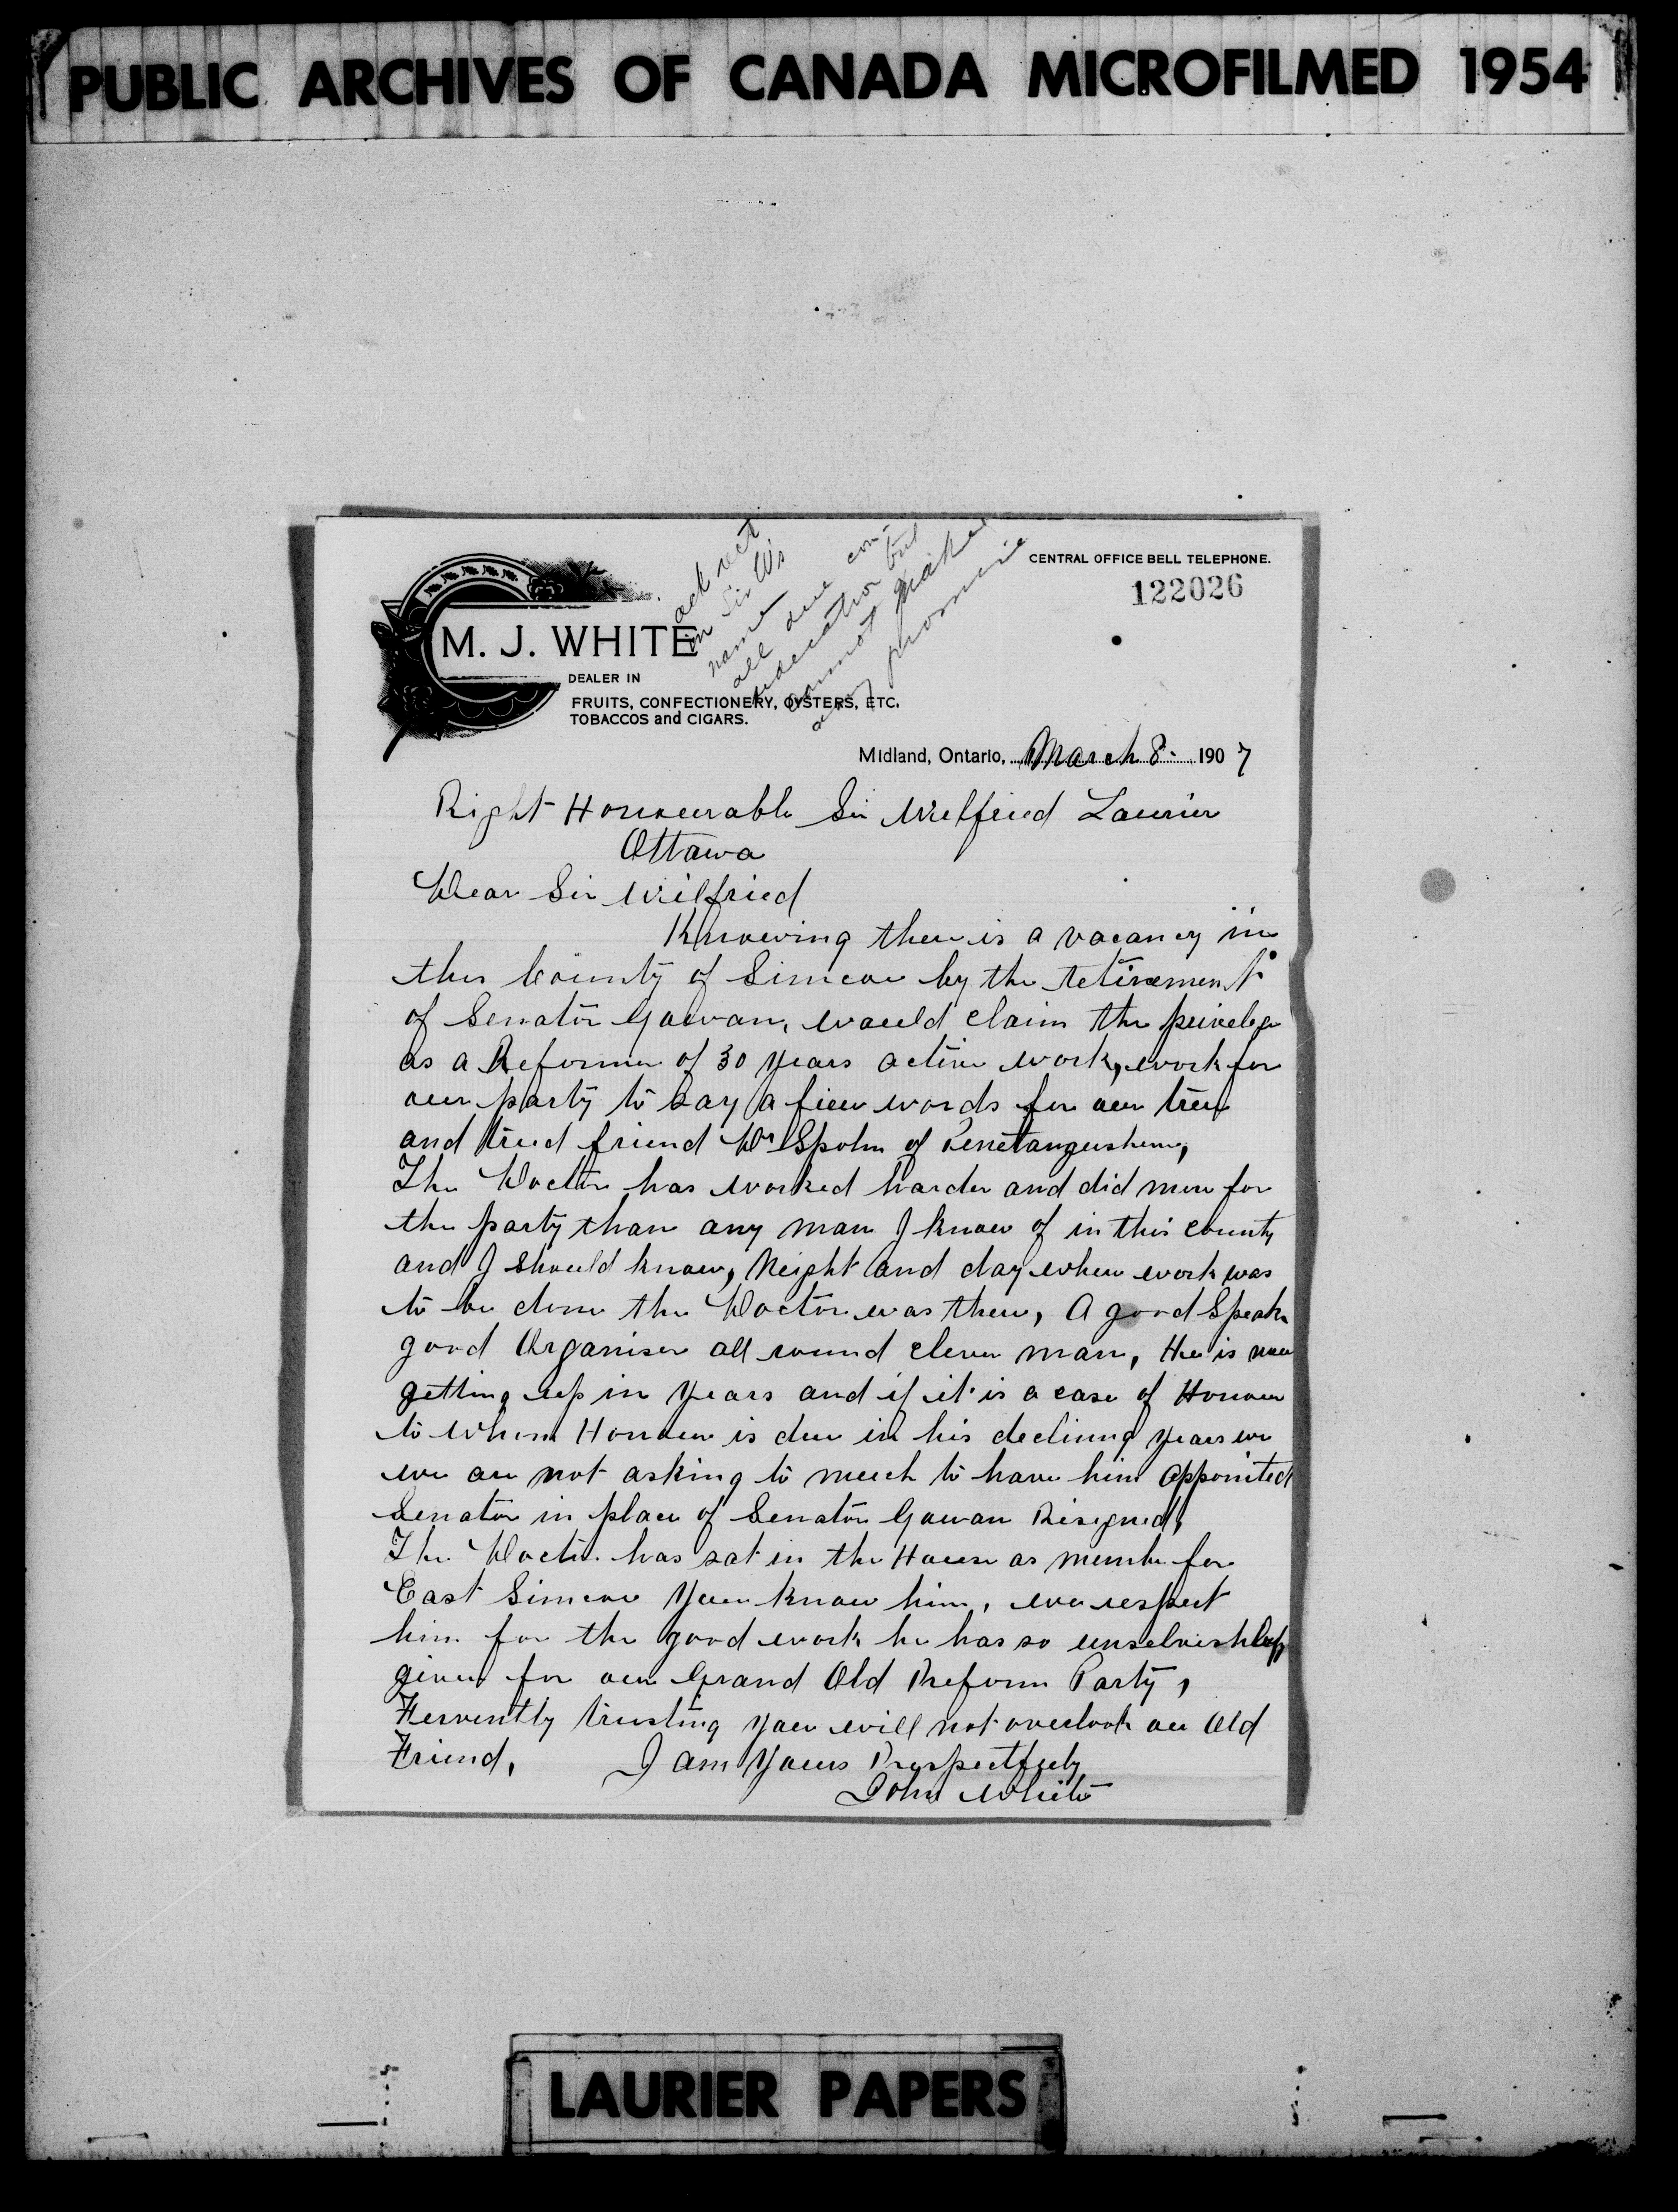 PUBLIC ARCHIVES OF CANADA MICROFILMED 1954
ack rect
in Sir W's
name
all due con-
sideration but
cannot make
any promise
CENTRAL OFFICE BELL TELEPHONE.
122026
M. J. WHITE
DEALER IN
FRUITS, CONFECTIONERY, OYSTERS, ETC.
TOBACCOS and CIGARS.
Midland, Ontario, March 8 1907
Right Honourable Sir Wilfried Laurier
Ottawa
Dear Sir Wilfried
Knowing there is a vacancy in
this County of Simcoe by the retirement
of Senator Gowan, would claim the privelege
as a Reformer of 30 years active work, work for
our party to say a few words for our true
and tried friend Dr Spohn of Penetangushene,
The Doctor has worked harder and did more for
the party than any man I know of in this county
and I should know, Neight and day when work was
to be done the Doctor was there, A good Speaker
good Organiser all round clever man, He is now
getting up in years and if it is a case of Honour
to whom Honour is due in his declining years we
we are not asking to much to have him appointed
Senator in place of Senator Gowan Resigned,
The Doctor has sat in the House as member for
East Simcoe you know him, we respect
him for the good work he has so unselvishley
given for our Grand Old Reform Party,
Fervently trusting you will not overlook our Old
Friend, I am Yours Respectfuly
John White
LAURIER PAPERS